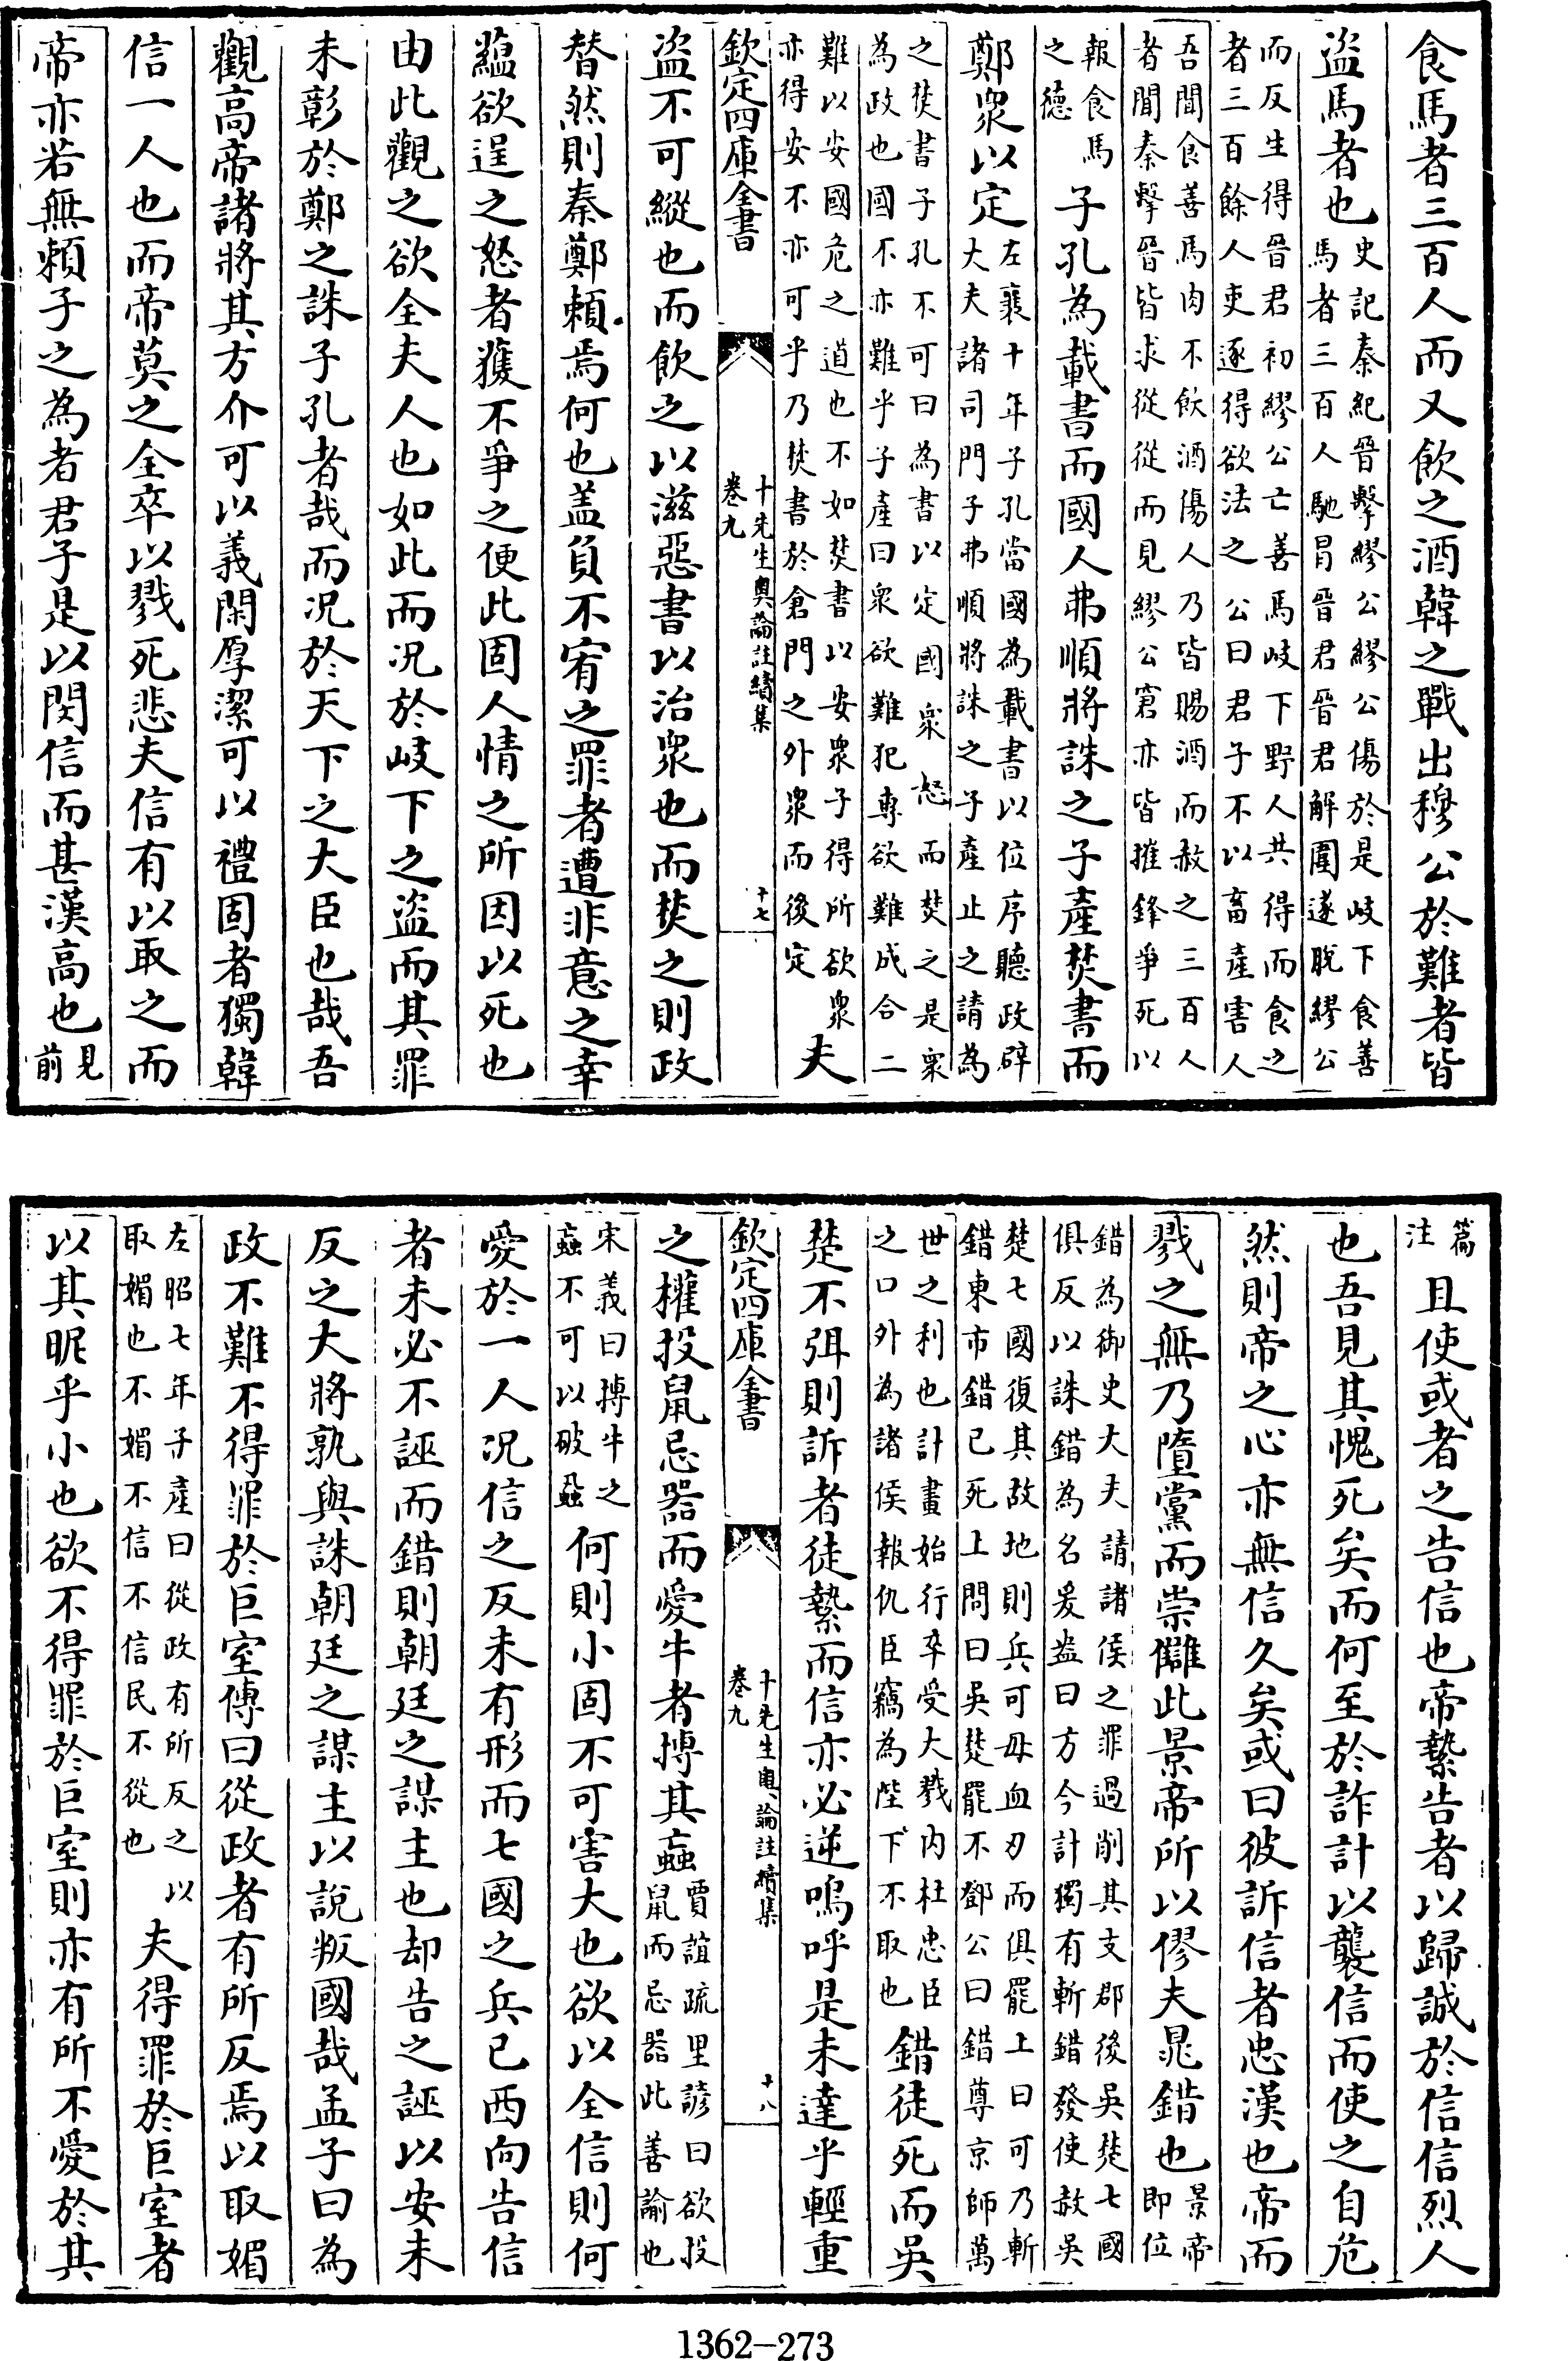 食馬者三百人而又飲之酒韓之戰出穆公於難者皆
盜馬者也
史記秦紀晉擊繆公繆公傷於是岐下食善
馬者三百人馳冒晉君晉君解圍遂脫繆公
而反生得晉君初繆公亡善馬岐下野人共得而食之
者三百餘人吏逐得欲法之公曰君子不以畜產害人
吾聞食善馬肉不飲酒傷人乃皆賜酒而赦之三百人
者聞秦擊晉皆求從從而見繆公窘亦皆摧鋒爭死以
報食馬
之德
子孔為載書而國人弗順將誅之子產焚書而
鄭衆以定
左襄十年子孔當國為載書以位序聽政辟
大夫諸司門子弗順將誅之子產止之請為
之焚書子孔不可曰為書以定國衆怒而焚之是衆
為政也國不亦難乎子產曰衆欲難犯專欲難成合二
難以安國危之道也不如焚書以安衆子得所欲衆
亦得安不亦可乎乃焚書於倉門之外衆而後定
夫
欽定四庫全書
十先生奧論註續集
卷九
十七
盜不可縱也而飲之以滋惡書以治衆也而焚之則政
替然則秦鄭賴焉何也盖負不宥之罪者遭非意之幸
蘊欲逞之怒者獲不爭之便此固人情之所因以死也
由此觀之欲全夫人也如此而况於岐下之盜而其罪
未彰於鄭之誅子孔者哉而况於天下之大臣也哉吾
觀高帝諸將其方介可以義閑厚潔可以禮固者獨韓
信一人也而帝莫之全卒以戮死悲夫信有以取之而
帝亦若無頼子之為者君子是以閔信而甚漢高也
見
前
篇
注
且使或者之告信也帝縶告者以歸誠於信信烈人
也吾見其愧死矣而何至於詐計以襲信而使之自危
然則帝之心亦無信久矣或曰彼訴信者忠漢也帝而
戮之無乃墮黨而崇讎此景帝所以僇夫晁錯也
景帝
即位
錯為御史大夫請諸侯之罪過削其支郡後吳楚七國
俱反以誅錯為名爰盎曰方今計獨有斬錯發使赦吳
楚七國復其故地則兵可毋血刃而俱罷上曰可乃斬
錯東市錯已死上問曰吳楚罷不鄧公曰錯尊京師萬
世之利也計畫始行卒受大戮内杜忠臣
之口外為諸侯報仇臣竊為陛下不取也
錯徒死而吳
楚不弭則訴者徒縶而信亦必逆嗚呼是未達乎輕重
欽定四庫全書
十先生奧論註續集
卷九
十八
之權投鼠忌器而愛牛者搏其蝱
賈誼疏里諺曰欲投
鼠而忌器此善諭也
宋義曰搏牛之
蝱不可以破蝨
何則小固不可害大也欲以全信則何
愛於一人况信之反未有形而七國之兵已西向告信
者未必不誣而錯則朝廷之謀主也却告之誣以安未
反之大將孰與誅朝廷之謀主以說叛國哉孟子曰為
政不難不得罪於巨室傳曰從政者有所反焉以取媚
左昭七年子產曰從政有所反之以
取媚也不媚不信不信民不從也
夫得罪於巨室者
以其昵乎小也欲不得罪於巨室則亦有所不愛於其
1362-273